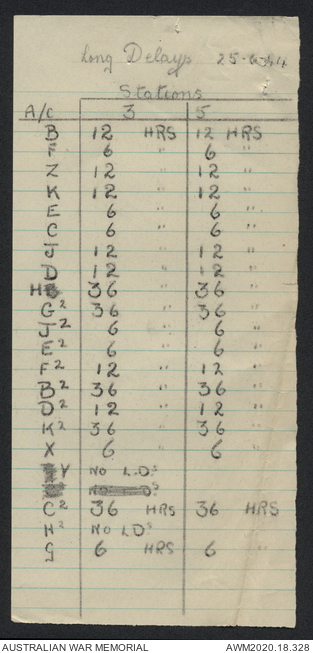 Long Delays 25-6-44
Stations
A/C 3 5
B 12 HRS 12 HRS
F 6 " 6 "
Z 12 " 12 "
K 12 " 12 "
E 6 " 6 "
C 6 " 6 "
J 12 " 12 "
D 12 " 12 "
H 36 " 36 "
G² 36 " 36 "
J² 6 " 6 "
E² 6 " 6 "
F² 12 " 12 "
B² 36 " 36 "
D² 12 " 12 "
K² 36 " 36 "
X 6 " 6 "
Y NO L.Ds
C² 36 HRS 36 HRS
H² NO LDs
G 6 HRS 6 "
AUSTRALIAN WAR MEMORIAL AWM2020.18.328